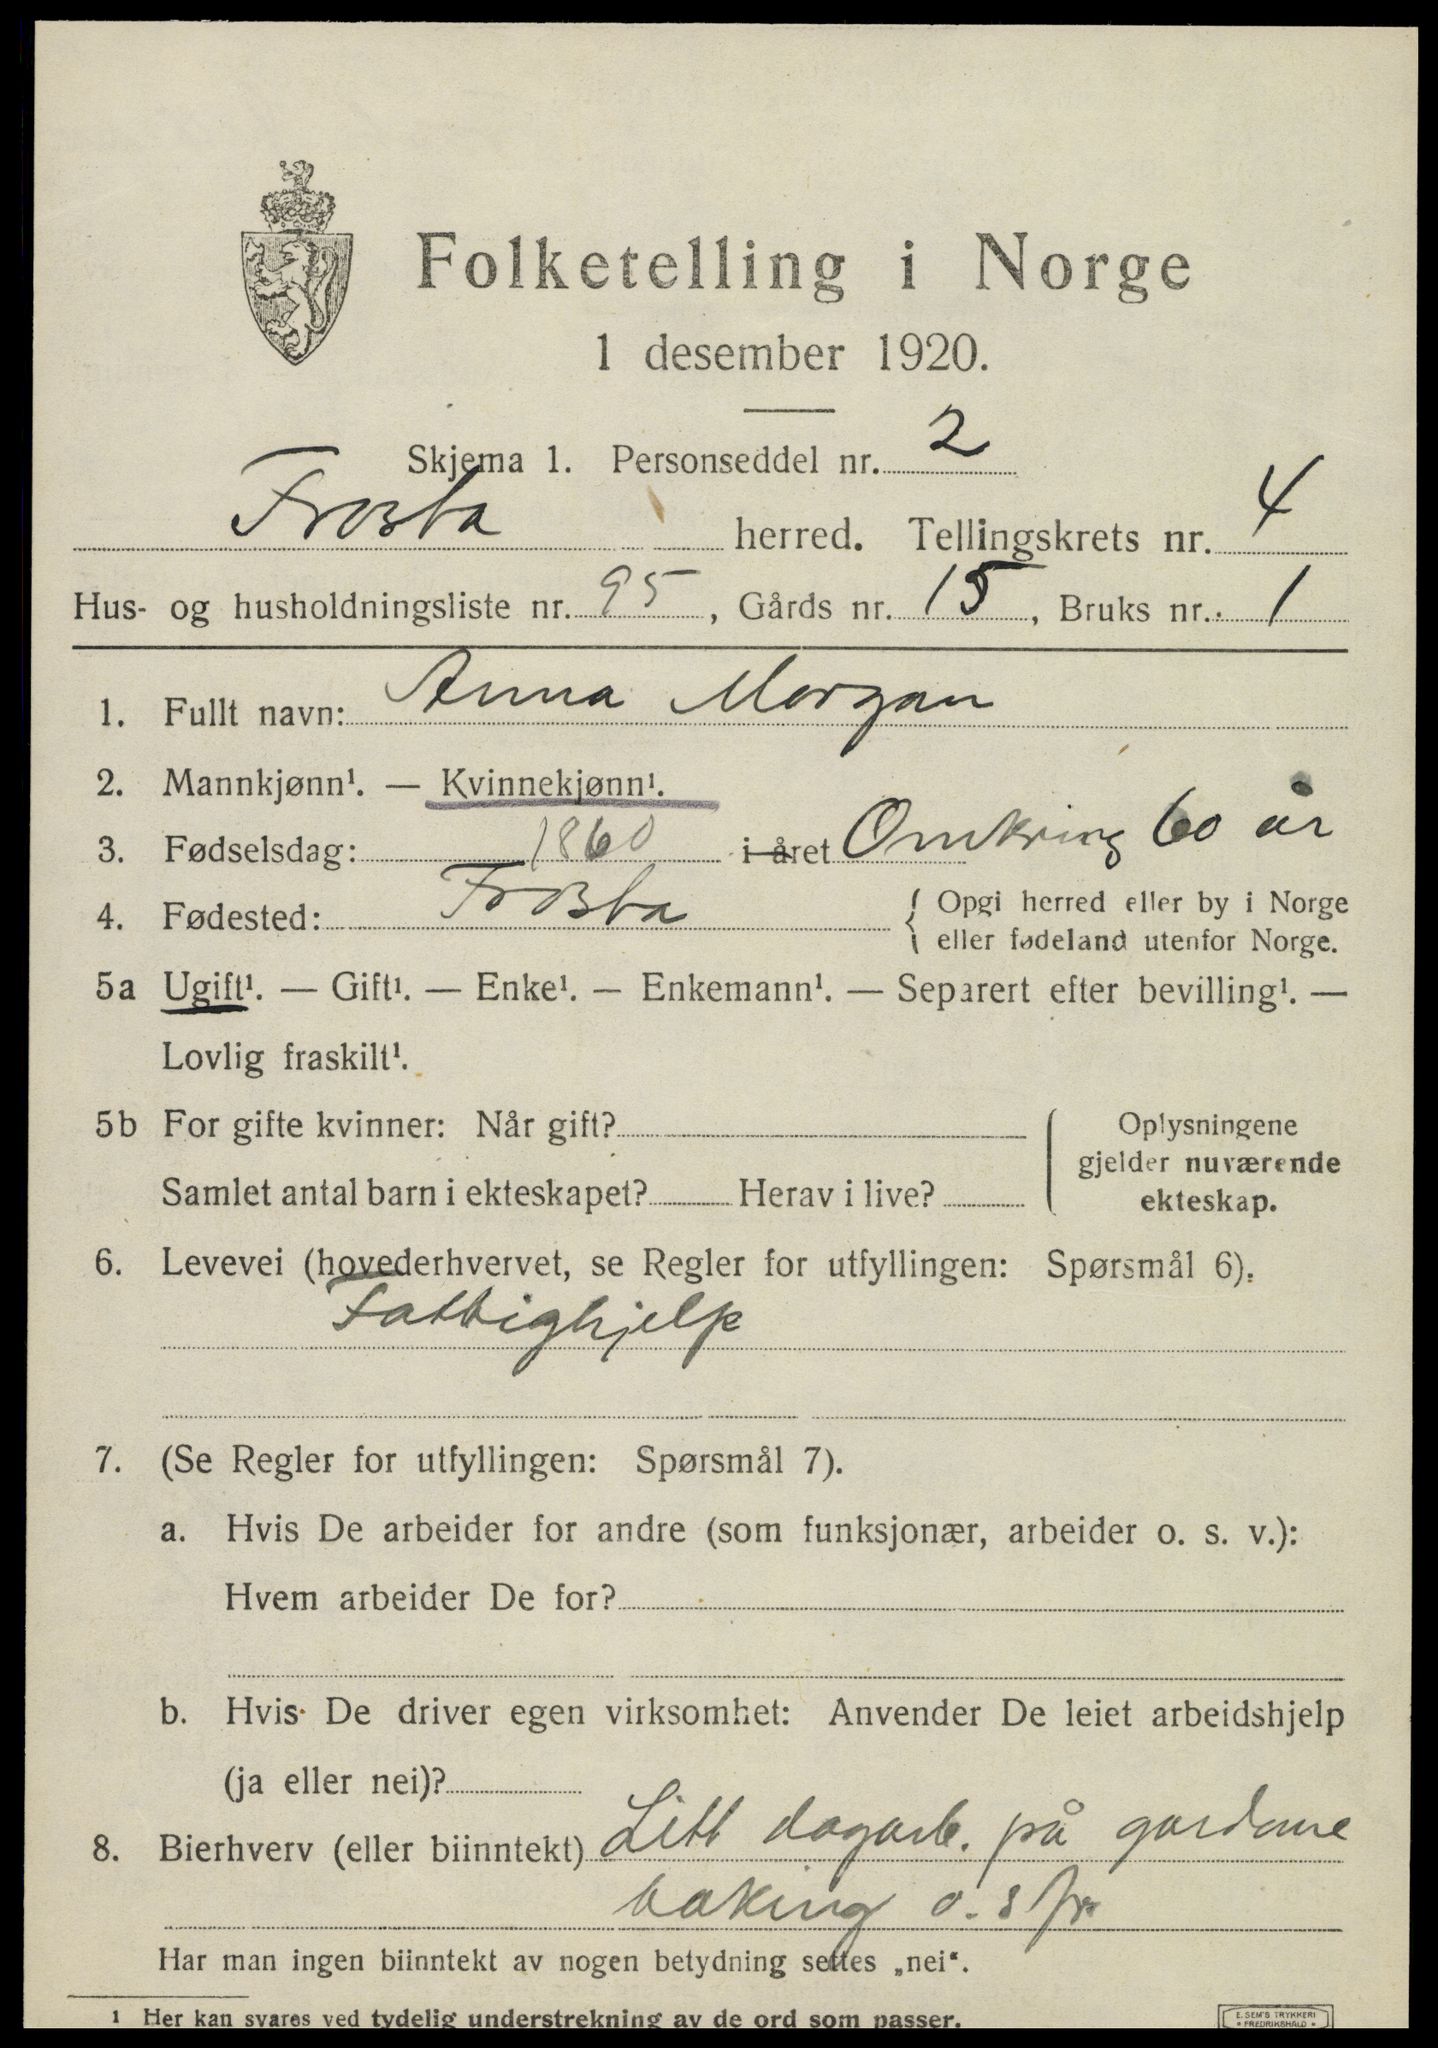 Folketelling i Norge
1 desember 1920.
Skjema 1. Personseddel nr. 2
Frosta herred. Tellingskrets nr. 4
Hus- og husholdningsliste nr. 95, Gårds nr. 15, Bruks nr. 1
1. Fullt navn: Anna Morgan
2. Mannkjønn¹. — Kvinnekjønn¹.
3. Fødselsdag: 1860 i året Omkring 60 år
4. Fødested: Frosta { Opgi herred eller by i Norge
eller fødeland utenfor Norge.
5a Ugift¹. — Gift¹. — Enke¹. — Enkemann¹. — Separert efter bevilling¹. —
Lovlig fraskilt¹.
5b For gifte kvinner: Når gift?
Samlet antal barn i ekteskapet? Herav i live?
Oplysningene
gjelder nuværende
ekteskap.
6. Levevei (hovederhvervet, se Regler for utfyllingen: Spørsmål 6).
Fattighjelp
7. (Se Regler for utfyllingen: Spørsmål 7).
a. Hvis De arbeider for andre (som funksjonær, arbeider o. s. v.):
Hvem arbeider De for?
b. Hvis De driver egen virksomhet: Anvender De leiet arbeidshjelp
(ja eller nei)?
8. Bierhverv (eller biinntekt) Litt dagarb. på gardane
baking o. s fr.
Har man ingen biinntekt av nogen betydning settes „nei“.
1 Her kan svares ved tydelig understrekning av de ord som passer.
E. SEM'S TRYKKERI
• FREDRIKSHALD •